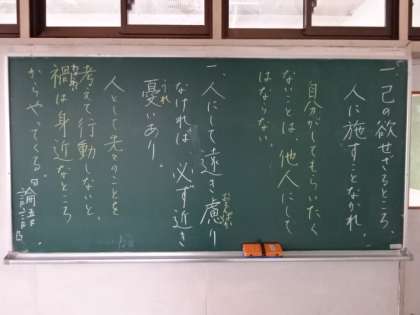 一、己の欲せざるところ、
人に施すことなかれ。
自分がしてもらいたく
ないことは、他人にして
はならない。
一、人にして遠き慮り
おもんぱか
なければ、必ず近き
憂いあり。
うれ
人として先々のことを
考えて行動しないと、
禍は身近なところ
わざわい
からやってくる。
論語